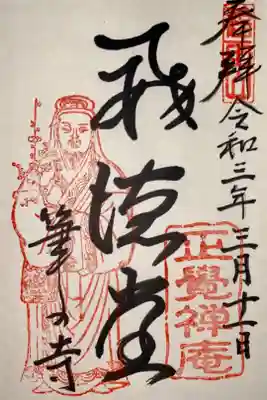 奉拝
令和三年三月十一日
威徳堂
筆の寺
正覺禅庵